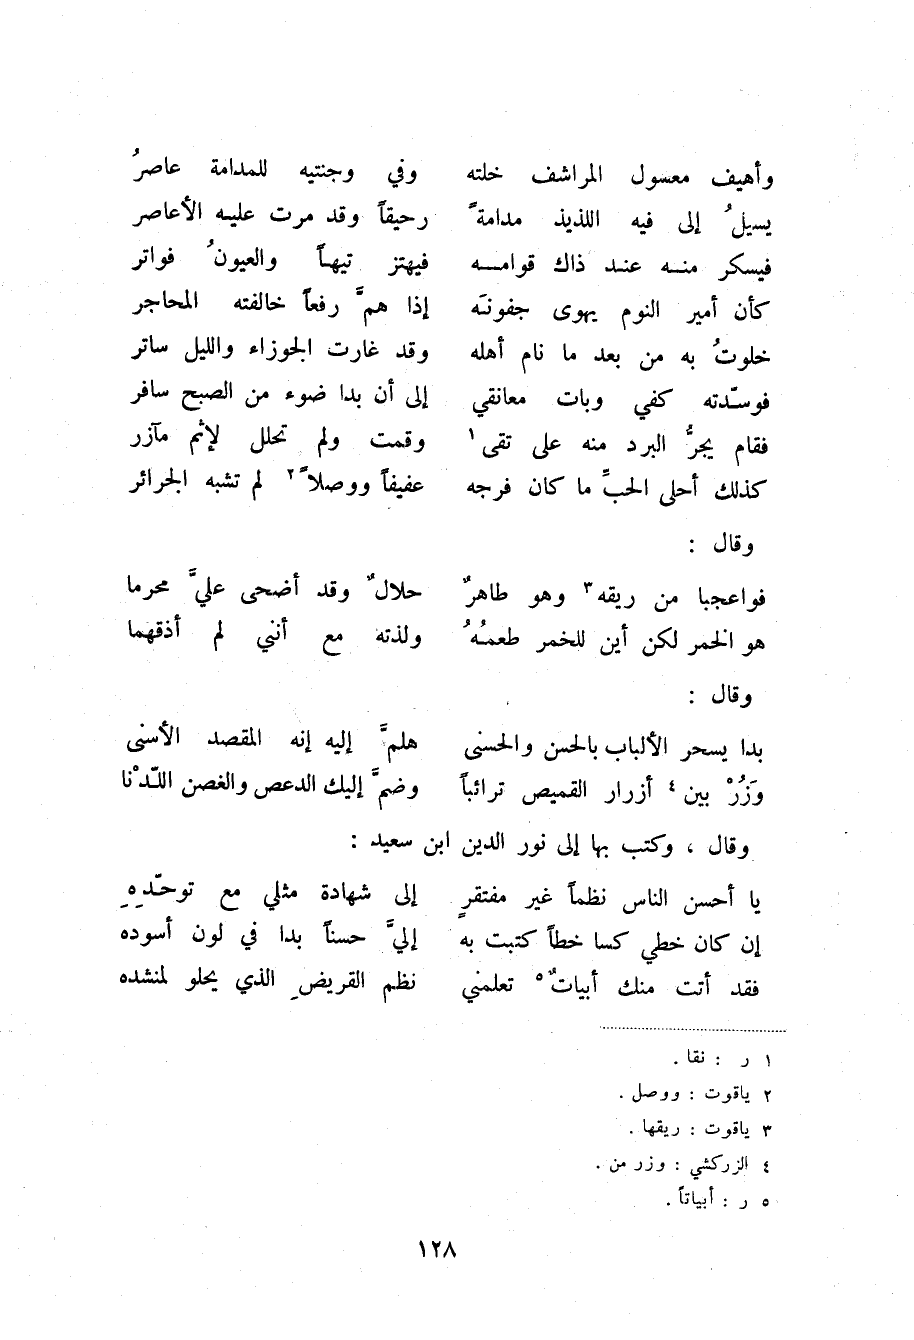 وأهيف معسول المراشف خلته وفي وجنتيه للمدامة عاصرُ
يسيلُ إلى فيه اللذيذ مدامةً رحيقاً وقد مرت عليه الأعاصر
فيسكر منه عند ذاك قوامه فيهتز تيهاً والعيونُ فواتر
كأن أمير النوم يهوى جفونَه إذا همَّ رفعاً خالفته المحاجر
خلوتُ به من بعد ما نام أهله وقد غارت الجوزاء والليل ساتر
فوسّدته كفي وبات معانقي إلى أن بدا ضوء من الصبح سافر
فقام يجرُّ البرد منه على تقى١ وقمت ولم تحلل لإثم مآزر
كذلك أحلى الحبِّ ما كان فرجه عفيفاً ووصلاً٢ لم تشبه الجرائر
وقال :
فواعجبا من ريقه٣ وهو طاهرٌ حلالٌ وقد أضحى عليَّ محرما
هو الخمر لكن أين للخمر طعمُهُ ولذته مع أنني لم أذقهما
وقال :
بدا يسحر الألباب بالحسن والحسنى هلمَّ إليه إنه المقصد الأسنى
وَزُرْ بين٤ أزرار القميص ترائباً وضمَّ إليك الدعص والغصن اللّدْنا
وقال ، وكتب بها إلى نور الدين ابن سعيد :
يا أحسن الناس نظماً غير مفتقرٍ إلى شهادة مثلي مع توحّدِهِ
إن كان خطي كسا خطاً كتبت به إليَّ حسناً بدا في لون أسوده
فقد أتت منك أبياتٌ٥ تعلمني نظم القريضِ الذي يحلو لمنشده
١ ر : نقا .
٢ ياقوت : ووصل .
٣ ياقوت : ريقها .
٤ الزركشي : وزر من .
٥ ر : أبياتاً .
١٢٨